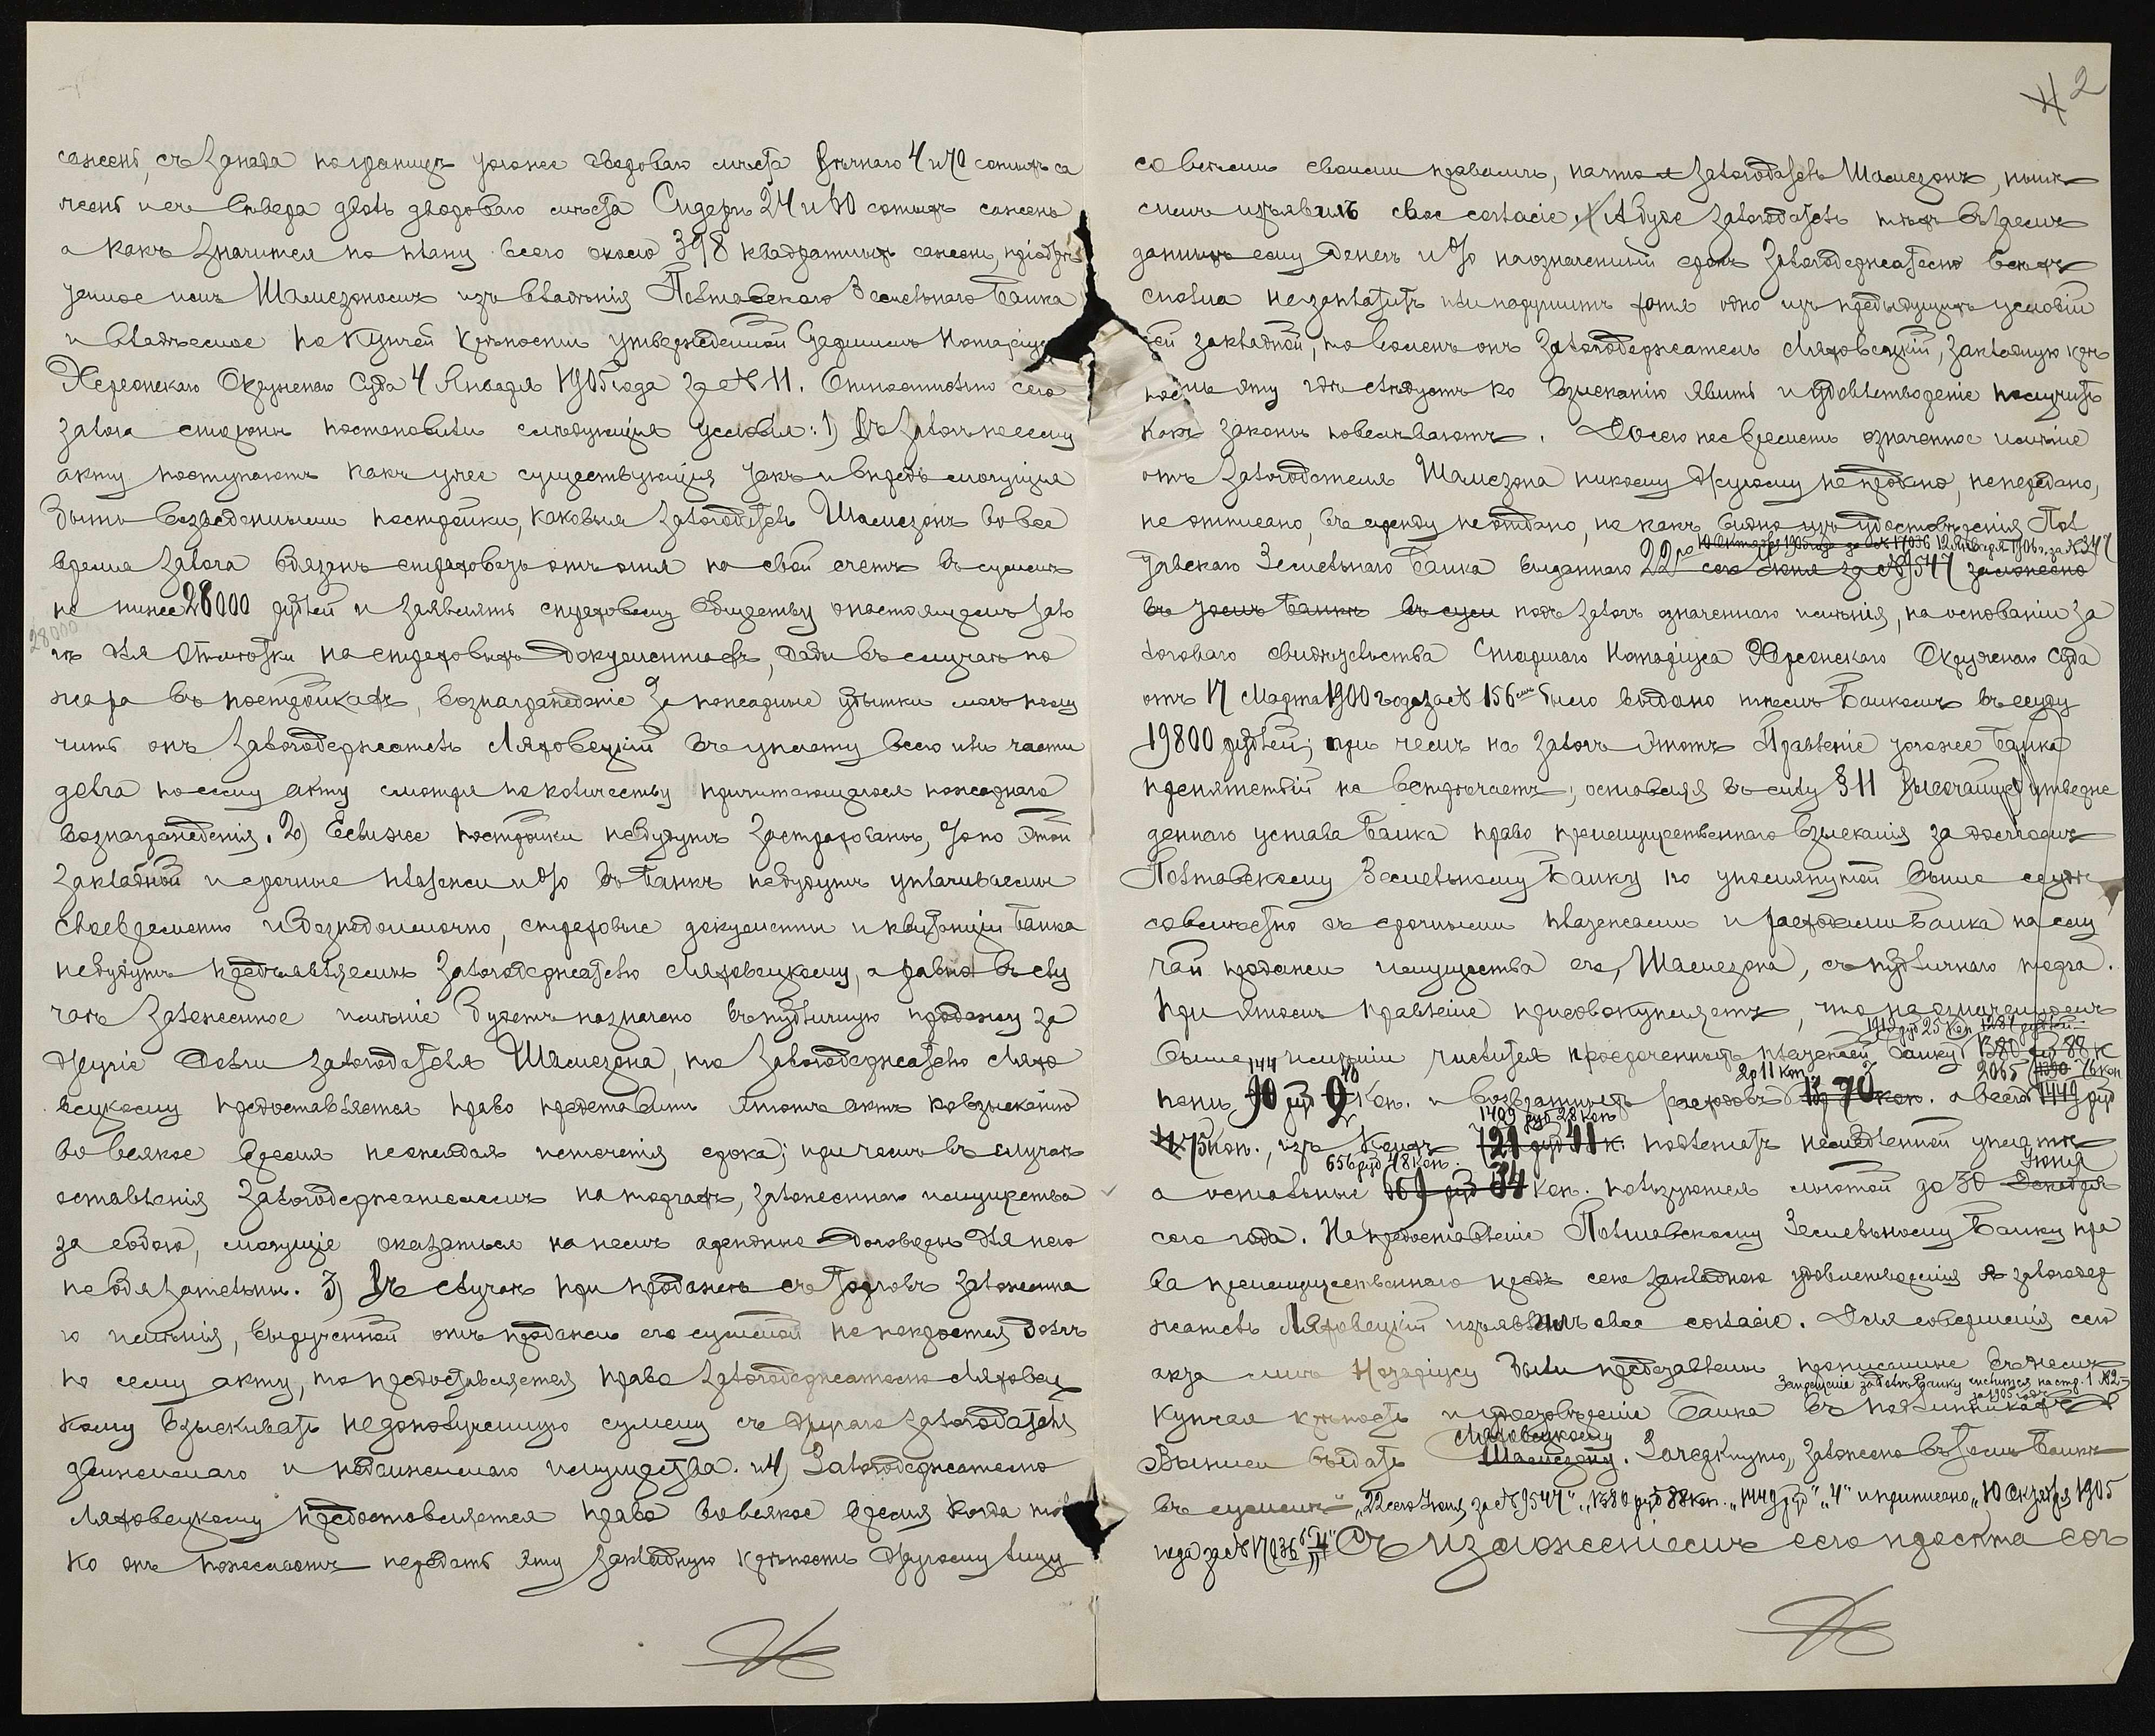 сажень, съ Запада по границѣ того же дворового мѣста Вѣчнаго 4 и 70 сотыхъ са
жень и съ Сѣвера двлѣ дворового мѣста Сидери 24 и 60 сотыхъ сажень
а какъ значится по плану всего около 398 квадратныхъ сажень, пріобрѣ
тенное имъ Шамезономъ изъ владѣнія Полтавскаго Земельнаго Банка
и владѣемое по купчей крѣпости утвержденной Старшимъ Нотаріусомъ
Херсонскаго Окружнаго Суда 4 Января 1905 года за № 11. Относительно сего
залога стороны постановили слѣдующія условія: 1) Въ залогъ по сему
акту поступаютъ какъ уже существующія такъ и впредь могущія
быть возведенными постройки, каковыя залогодатель Шамезонъ во все
время залога обязанъ страховать отъ огня на свой счетъ въ суммѣ
не ниже 28000 рублей и заявлять страховому Обществу о настоящемъ зало
28000
гѣ для отмѣтки на страховыхъ документахъ, дабы въ случаѣ по
жара въ постройкахъ, вознагражденіе за пожарные убытки могъ полу
чить онъ залогодержатель Ляховецкій въ уплату всего или части
долга по сему акту смотря по количеству причитающагося пожарнаго
вознагражденія. 2) Если же постройки не будутъ застрахованы, то по этой
закладной и срочные платежи и % въ Банкъ не будутъ уплачиваемы
своевременно и бездоимочно, страховые документы и квитанціи Банка
не будутъ предъявляемы залогодержателю Ляховецкому, а равно въ слу
чаѣ заложенное имѣніе будетъ назначено въ публичную продажу за
другіе долги залогодателя Шамезона, то залогодержателю Ляхо
вецкому предоставляется право представить этотъ актъ ко взысканію
во всякое время не ожидая истеченія срока; при чемъ въ случаѣ
оставленія залогодержателемъ на торгахъ, заложеннаго имущества
за собою, могущіе оказаться на немъ арендные договоры для него
не обязательны. 3) Въ случаѣ при продажѣ съ торговъ заложенна
го имѣнія, вырученной отъ продажи его суммой не покроется долгъ
по сему акту, то предоставляется право залогодержателю Ляховец
кому взыскивать недополученную сумму съ другого залогодателя
движимаго и недвижимаго имущества. и 4) Залогодержателю
Ляховецкому предоставляется право во всякое время когда толь
ко онъ пожелаетъ передать эту закладную крѣпость другому лицу
2
со всѣми своими правами, на что залогодатель Шамезонъ, нынѣ
симъ изъявилъ свое согласіе. А буде залогодатель тѣхъ взаемъ
данныхъ ему денегъ и % на означенный срокъ Залогодержателю всѣхъ
сполна не заплатитъ или нарушитъ хотя одно изъ предыдущихъ условій
сей закладной, то воленъ онъ Залогодержатель Ляховецкій, закладную крѣ
пость эту гдѣ слѣдуетъ ко взысканію явить и удовлетвореніе получить
какъ законы повелѣваютъ. До сего же времени означенное имѣніе
отъ залогодателя Шамезона никому другому не продано, не передано,
не отписано, въ аренду не отдано, но какъ видно изъ удостовѣренія Пол
10 Октября 1905 года за № 17036 12 Января 1906 г. за № 347
тавскаго Земельнаго Банка выданнаго 22го сего Іюня за № 9547 заложено
въ томъ Банкѣ въ сум подъ залогъ означеннаго имѣнія, на основаніи за
логоваго свидѣтельства Старшаго Нотаріуса Херсонскаго Окружнаго Суда
отъ 17 Марта 1900 года за № 156 было выдано тѣмъ Банкомъ въ ссуду
19800 рублей; при чемъ на залогъ этотъ Правленіе того же Банка
препятствій не встрѣчаетъ, оставляя въ силу § 11 Высочайше утверж
деннаго устава Банка право преимущественнаго взысканія за долгомъ
Полтавскому Земельному Банку по упомянутой выше ссудѣ
совмѣстно съ срочными платежами и расходами Банка на слу
чай продажи имущества его, Шамезона, съ публичнаго торга.
При этомъ Правленіе присовокупляетъ, что на означенномъ
1919 руб 25 коп 1284 рублей
выше имѣніи числится просроченныхъ платежей Банку 1380 руб 88 к
144 10 2 р 11 коп 2065 76 коп
пени 90 руб 9 коп. и возвратныхъ расходовъ 70 коп. а всего 1449 руб
1409 руб 28 коп
75 коп., изъ коихъ 721 руб 41 к. подлежатъ немедленной уплатѣ
656 руб 48 коп. Іюня
а остальные 669 руб 34 коп. пользуются льготой до 30 Декабря
сего года. На предоставленіе Полтавскому Земельному Банку пра
ва преимущественнаго предъ сею закладною удовлетворенія я залогодер
жатель Ляховецкій изъявилъ свое согласіе. Для совершенія сего
акта мнѣ Нотаріусу были представлены прописанные въ немъ
Запрещеніе за долгъ Банку числится на стр. 1 № 2
за 1905 годъ
купчая крѣпость и удостовѣреніе Банка въ подлинникахъ
Ляховецкому
Выпись выдать Шамезону. Зачеркнуто „заложено въ томъ Банкѣ
въ суммѣ“ „22 сего Іюня за № 9547“ „1380 руб 88 коп.“ „1449 руб“ „4“ и приписано „10 Октября 1905
года за № 17036“ Съ изложеніемъ сего проекта сог